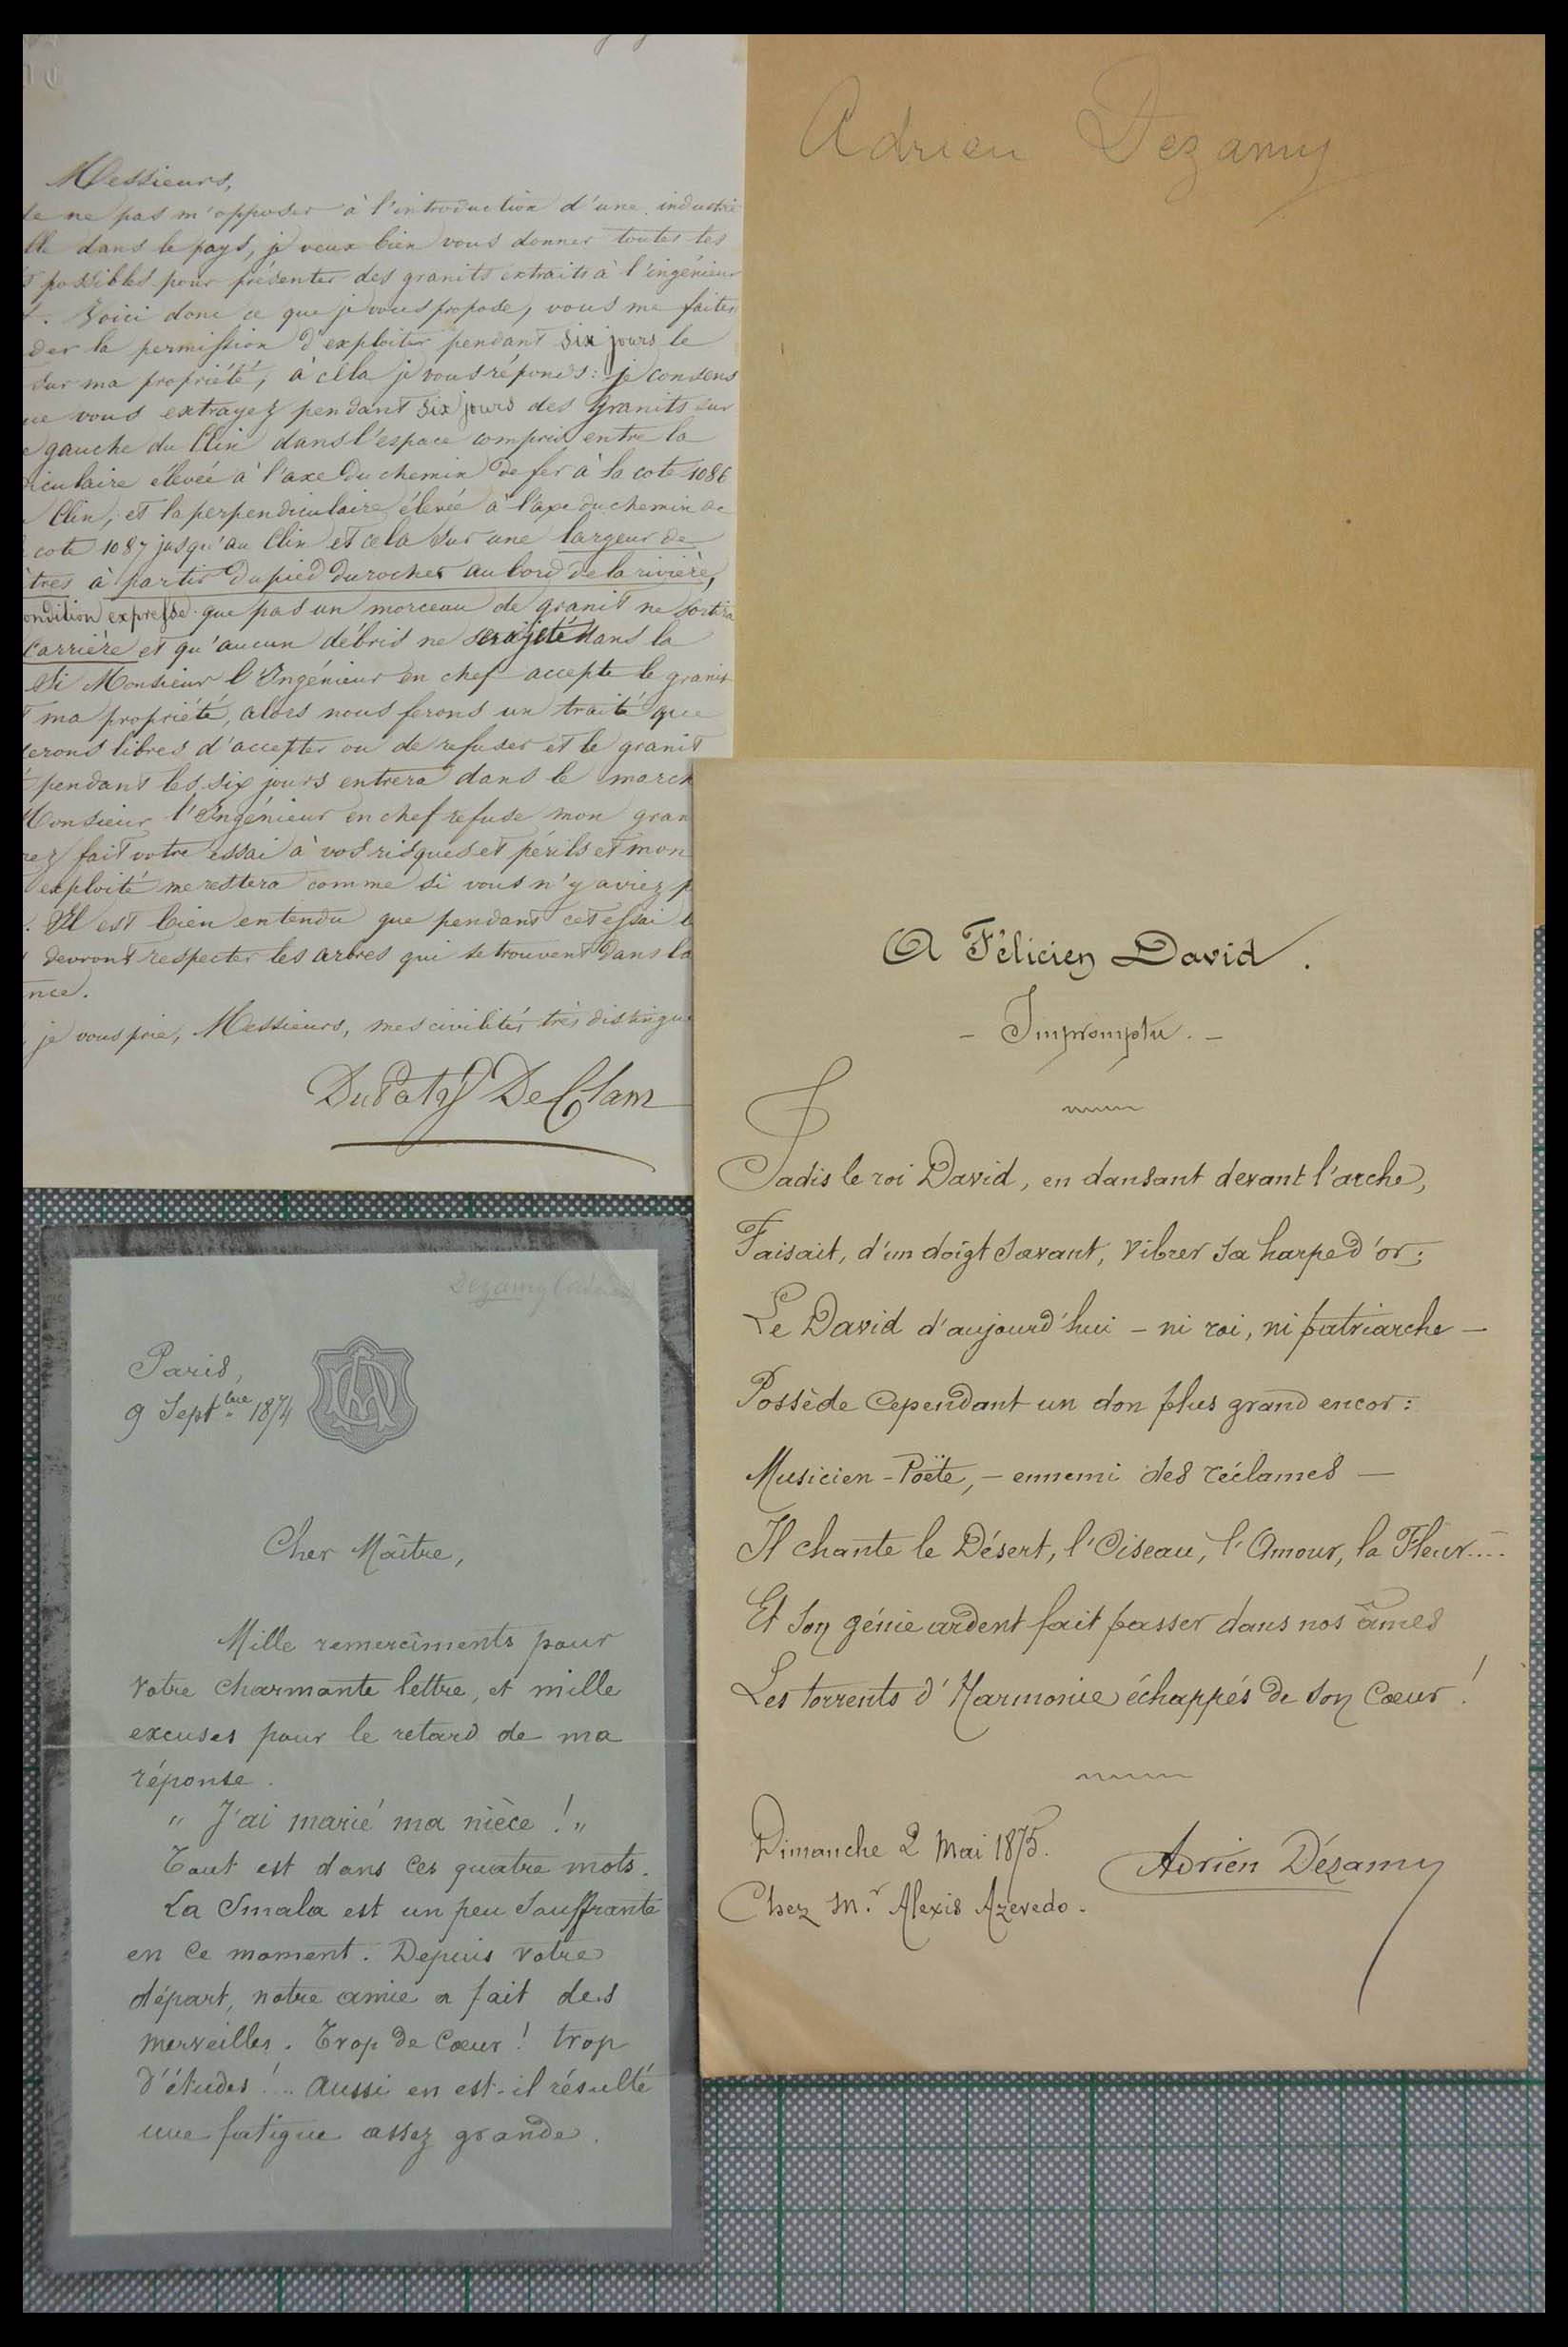 Messieurs,
de ne pas m'opposer à l'introduction d'une industrie
lle dans le pays, je veux bien vous donner toutes les
s possibles pour présenter des granits extraits à l'ingénieur
. Voici donc ce que je vous propose, vous me faites
der la permission d'exploiter pendant six jours le
sur ma propriété, à cela je vous réponds : je consens
ue vous extrayez pendant six jours des granits sur
e gauche du Clin dans l'espace compris entre la
diculaire élevée à l'axe du chemin de fer à la cote 1086
Clin, et la perpendiculaire élevée à l'axe du chemin de
cote 1087 jusqu'au Clin et cela sur une largeur de
ètres à partir du pied du rocher au bord de la rivière,
ondition expresse que pas un morceau de granit ne sortira
carrière et qu'aucun débris ne sera jeté dans la
Si Monsieur l'Ingénieur en chef accepte le granit
ma propriété, alors nous ferons un traité que
serons libres d'accepter ou de refuser et le granit
pendant les six jours entrera dans le march
Monsieur l'Ingénieur en chef refuse mon gran
rez fait votre essai à vos risques et périls et mon
exploité me restera comme si vous n'y aviez p
. Il est bien entendu que pendant cet essai le
devront respecter les arbres qui se trouvent dans la
nce.
je vous prie, Messieurs, mes civilités très distingu
DuPaty De Clam
Adrien Dezamy
Dezamy (Adrien)
Paris,
9 Septbre 1874
Cher Maître,
Mille remercîments pour
votre charmante lettre, et mille
excuses pour le retard de ma
réponse.
" J'ai marié ma nièce ! "
Tout est dans ces quatre mots.
La Smala est un peu souffrante
en ce moment. Depuis votre
départ, notre amie a fait des
merveilles. Trop de Cœur ! trop
d'études ! .. aussi en est-il résulté
une fatigue assez grande.
A Félicien David.
- Impromptu. -
Jadis le roi David, en dansant devant l'arche,
Faisait, d'un doigt savant, vibrer sa harpe d'or ;
Le David d'aujourd'hui - ni roi, ni patriarche -
Possède cependant un don plus grand encor :
Musicien - Poëte, - ennemi des réclames -
Il chante le Désert, l'Oiseau, l'Amour, la Fleur....
Et son génie ardent fait passer dans nos âmes
Les torrents d'Harmonie échappés de son Cœur !
Dimanche 2 Mai 1875.
Chez Mr. Alexis Azevedo.
Adrien Dézamy